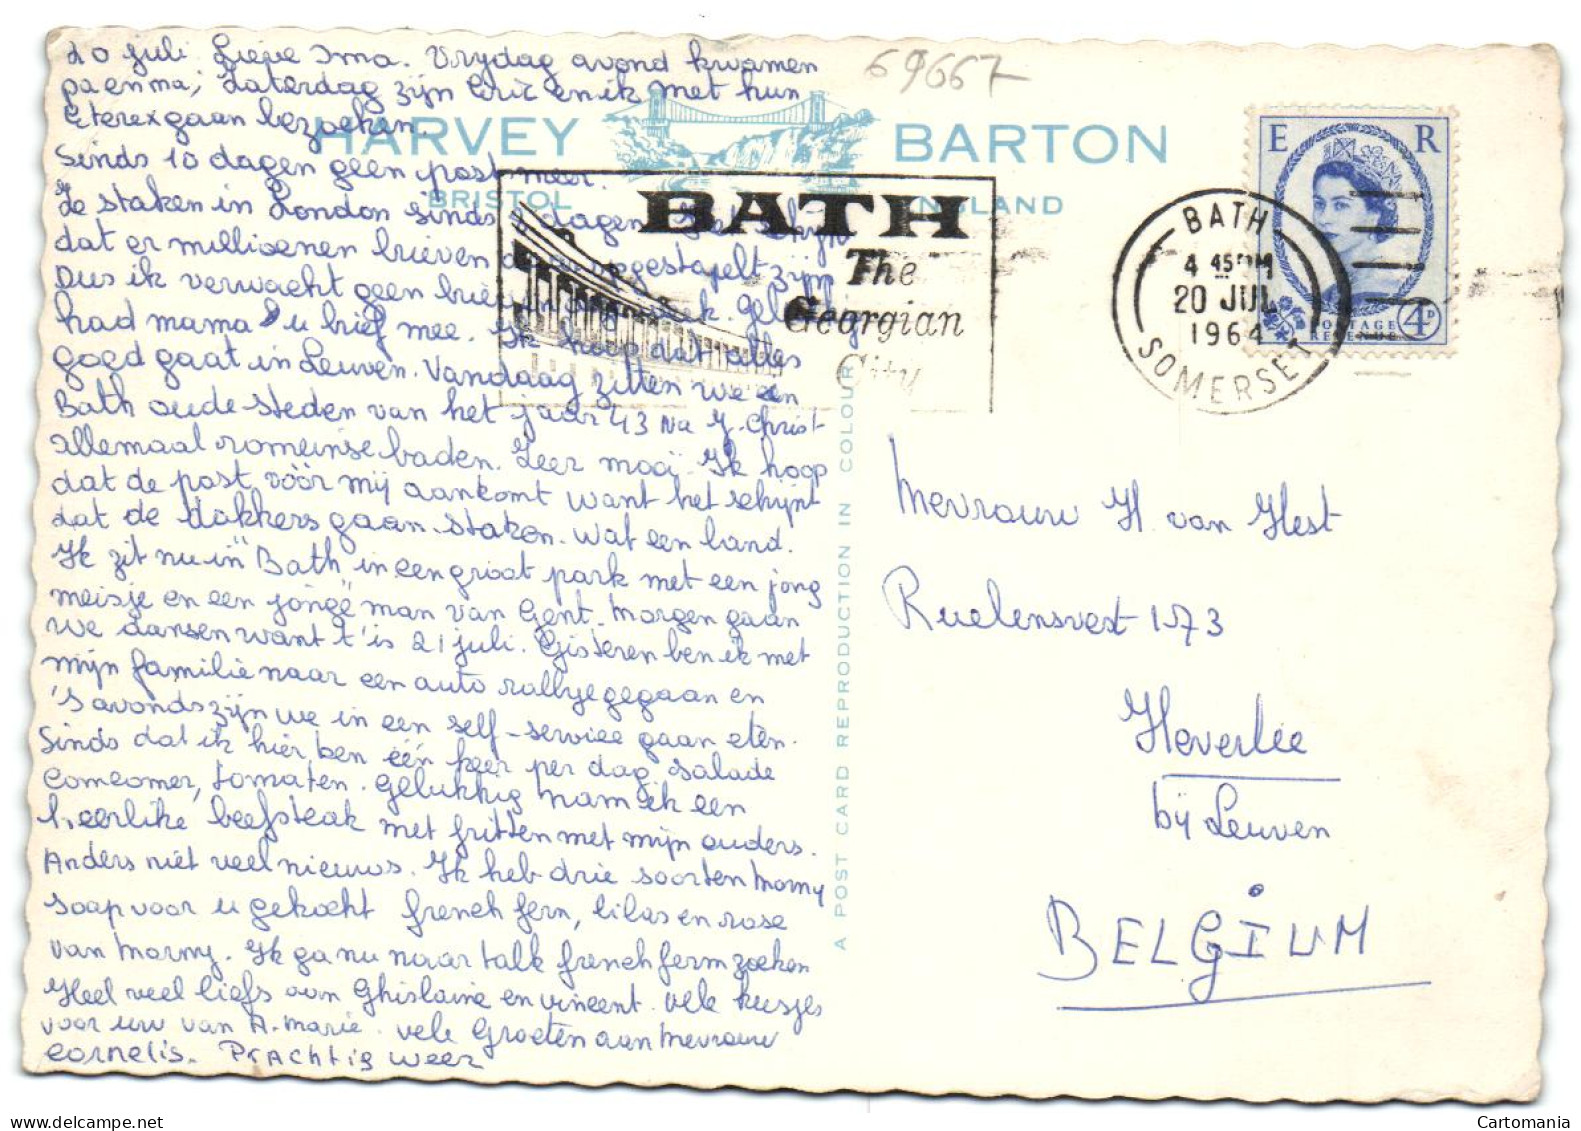 20 juli. Lieve Ima. Vrydag avond kwamen
pa en ma, Zaterdag zijn Eric en ik met hun
Eterex gaan bezoeken.
Sinds 10 dagen geen post meer.
Ze staken in London sinds dagen
dat er millioenen brieven opgestapelt zijn
Dus ik verwacht geen brieven
had mama u brief mee. Ik hoop dat alles
goed gaat in Leuven. Vandaag zitten we in
Bath oude steden van het jaar 43 Na J. Christ
allemaal romeinse baden. Zeer mooi. Ik hoop
dat de post vóór mij aankomt want het schijnt
dat de dokkers gaan staken. Wat een land.
Ik zit nu in "Bath" in een groot park met een jong
meisje en een jonge man van Gent. Morgen gaan
we dansen want t'is 21 juli. Gisteren ben ik met
mijn familie naar een auto rallye gegaan en
's avonds zijn we in een self-service gaan eten.
Sinds dat ik hier ben één keer per dag salade
comcomer, tomaten. Gelukkig nam ik een
heerlike beefsteak met fritten met mijn ouders.
Anders niet veel nieuws. Ik heb drie soorten Morny
soap voor u gekocht french fern, lilas en rose
van Morny. Ik ga nu naar talk french fern zoeken
Heel veel liefs aan Ghislaine en Vincent. Vele kusjes
voor uw van A. Marie. Vele Groeten aan Mevrouw
Cornelis. Prachtig weer
69667
HARVEY BARTON
BRISTOL ENGLAND
BATH
The
Georgian
City
BATH
4 45 PM
20 JUL
1964
SOMERSET
E R
POSTAGE
REVENUE
4D
A POST CARD REPRODUCTION IN COLOUR
Mevrouw H. van Hest
Ruelensvest 173
Heverlee
bij Leuven
BELGIUM
Cartomania